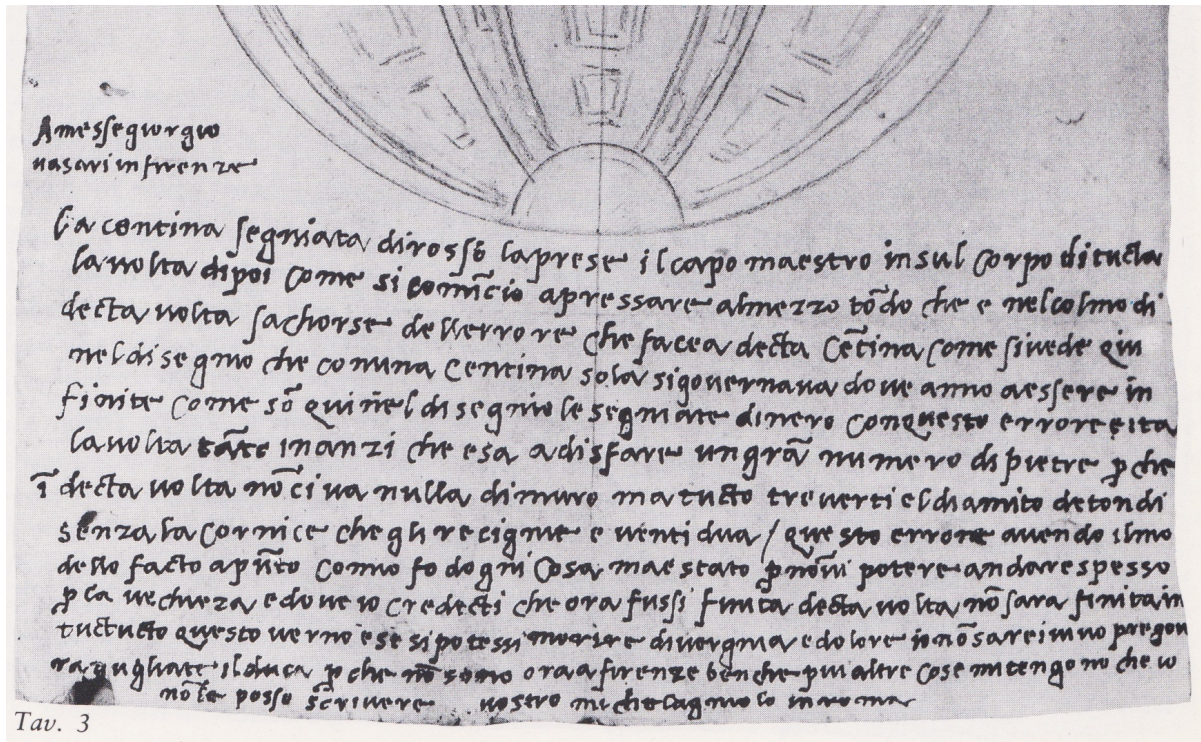 A messe giorgio
vasari in firenze
La centina segniata di rosso la prese il capo maestro in sul corpo di tucta
la volta di poi come si comīcio a pressare al mezzo tōdo che e nel colmo di
decta volta sachorse dell errore che facea decta cētina come si vede qui
nel disegnio che con una centina sola si governava dove anno a essere in
finite come sō qui nel disegnio le segniate di nero con questo errore e ita
la volta tāto inanzi che es a a disfare un grā numero di pietre p che
ī decta volta nō ci va nulla di muro ma tucto treverti e l diamitro de tondi
senza la cornice che gli recignie e venti dua / questo errore avendo il mo
dello facto apūto como fo d ogni cosa m a e stato p nō vi potere andare spesso
p la vechieza e dove io credecti che ora fussi finita decta volta nō sara finita in
tuctucto questo verno e se si potessi morire di vergogna e dolore io nō sarei vivo prego vi
raguagliate il duca p che nō sono ora a firenze benche piu altre cose mi tengono che io
nō le posso scrivere vostro michelagniolo in roma
Tav. 3